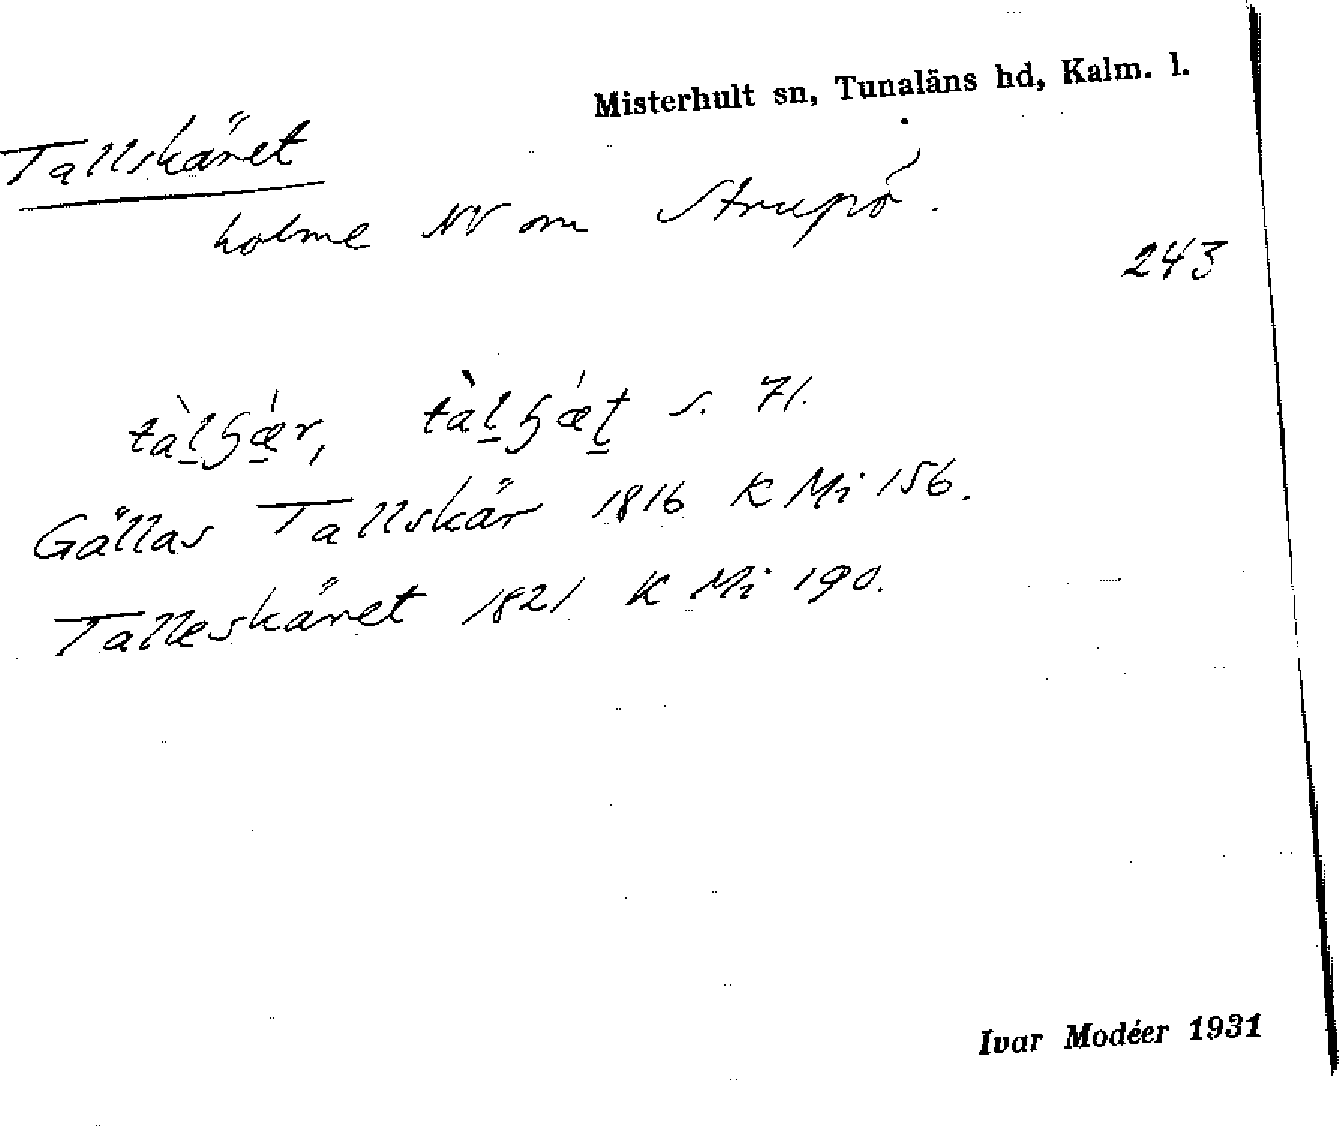 Misterhult sn, Tunaläns hd, Kalm. l.
Tallskäret
holme NV om Strupö.
243
s. 71.
Gällas Tallskär 1816 K Mi 156.
Talleskäret 1821 K Mi 190.
Ivar Modéer 1931